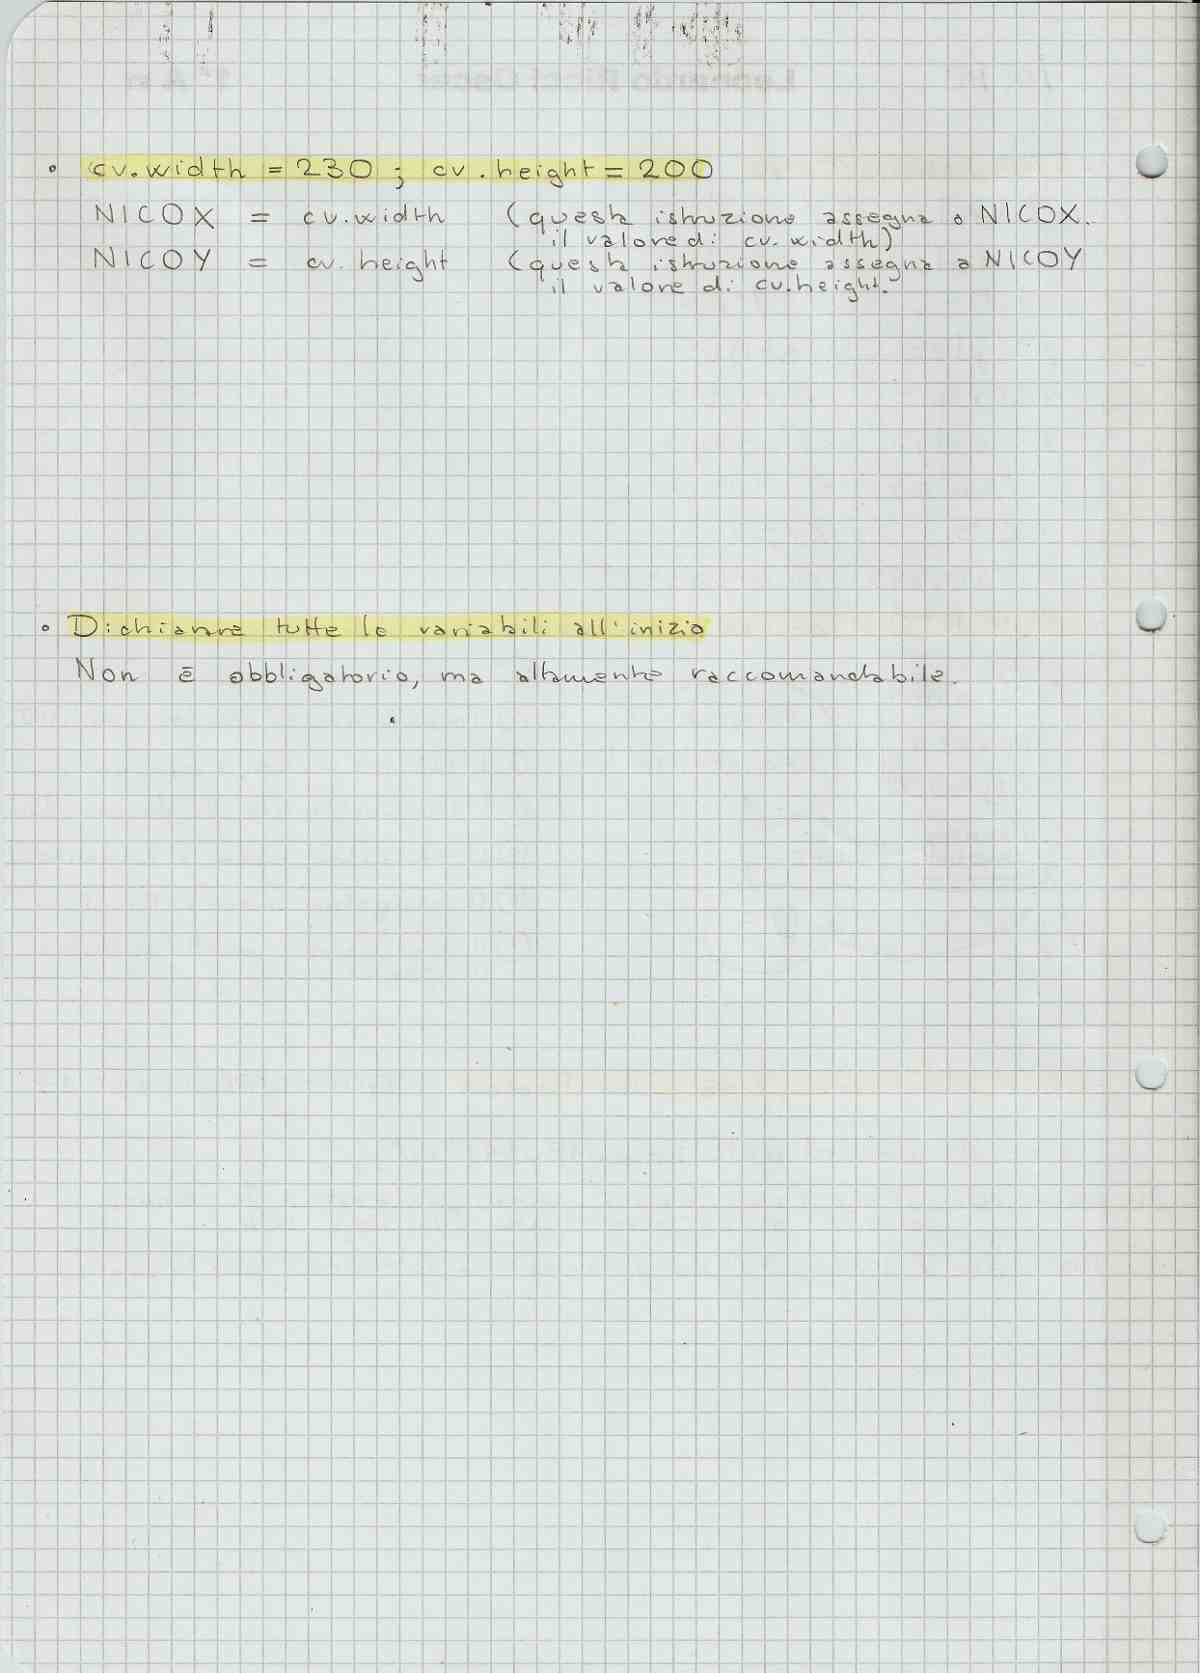 • cv.width = 230 ; cv.height = 200
NICOX = cv.width (questa istruzione assegna a NICOX.
il valore di cv.width)
NICOY = cv.height (questa istruzione assegna a NICOY
il valore di cv.height.
• Dichiarare tutte le variabili all'inizio
Non è obbligatorio, ma altamente raccomandabile.